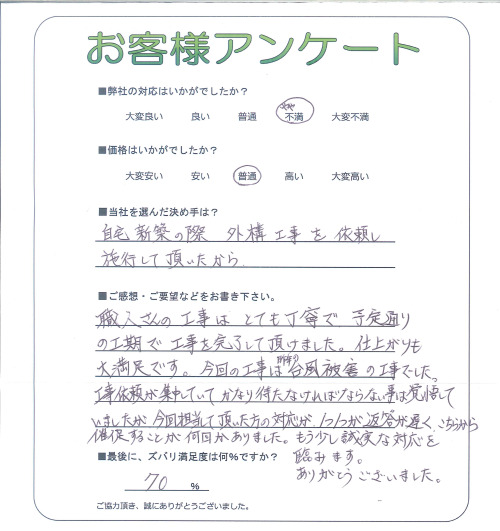 お客様アンケート
■弊社の対応はいかがでしたか？
大変良い 良い 普通 やや不満 大変不満
■価格はいかがでしたか？
大変安い 安い 普通 高い 大変高い
■当社を選んだ決め手は？
自宅新築の際 外構工事を依頼し
施行して頂いたから
■ご感想・ご要望などをお書き下さい。
職人さんの工事はとても丁寧で、予定通り
の工期で工事を完了して頂けました。仕上がりも
大満足です。今回の工事は台風被害の工事でした。
工事依頼が集中していてかなり待たなければならない事は覚悟して
いましたが今回担当して頂いた方の対応が1つ1つが返答が遅く、こちらから
催促することが何回かありました。もう少し誠実な対応を
臨みます。
■最後に、ズバリ満足度は何%ですか？
ありがとうございました。
70 %
ご協力頂き、誠にありがとうございました。